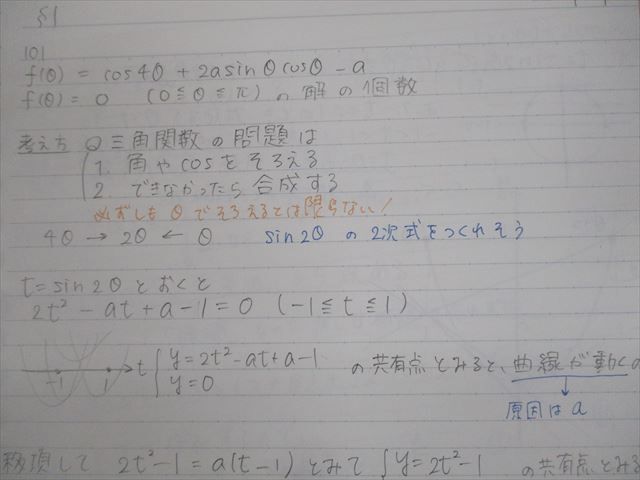 §1
101
f(θ) = cos4θ + 2a sinθ cosθ - a
f(θ) = 0 (0 ≦ θ ≦ π) の解の個数
考え方 Q 三角関数の問題は
1. 角やcosをそろえる
2. できなかったら合成する
必ずしもθでそろえるとは限らない!
4θ → 2θ ← θ sin2θ の2次式をつくれそう
t = sin2θ とおくと
2t² - at + a - 1 = 0 (-1 ≦ t ≦ 1)
-1 1 t { y = 2t² - at + a - 1 の共有点とみると、曲線が動く
y = 0
原因は a
移項して 2t² - 1 = a(t - 1) とみて { y = 2t² - 1 の共有点とみる